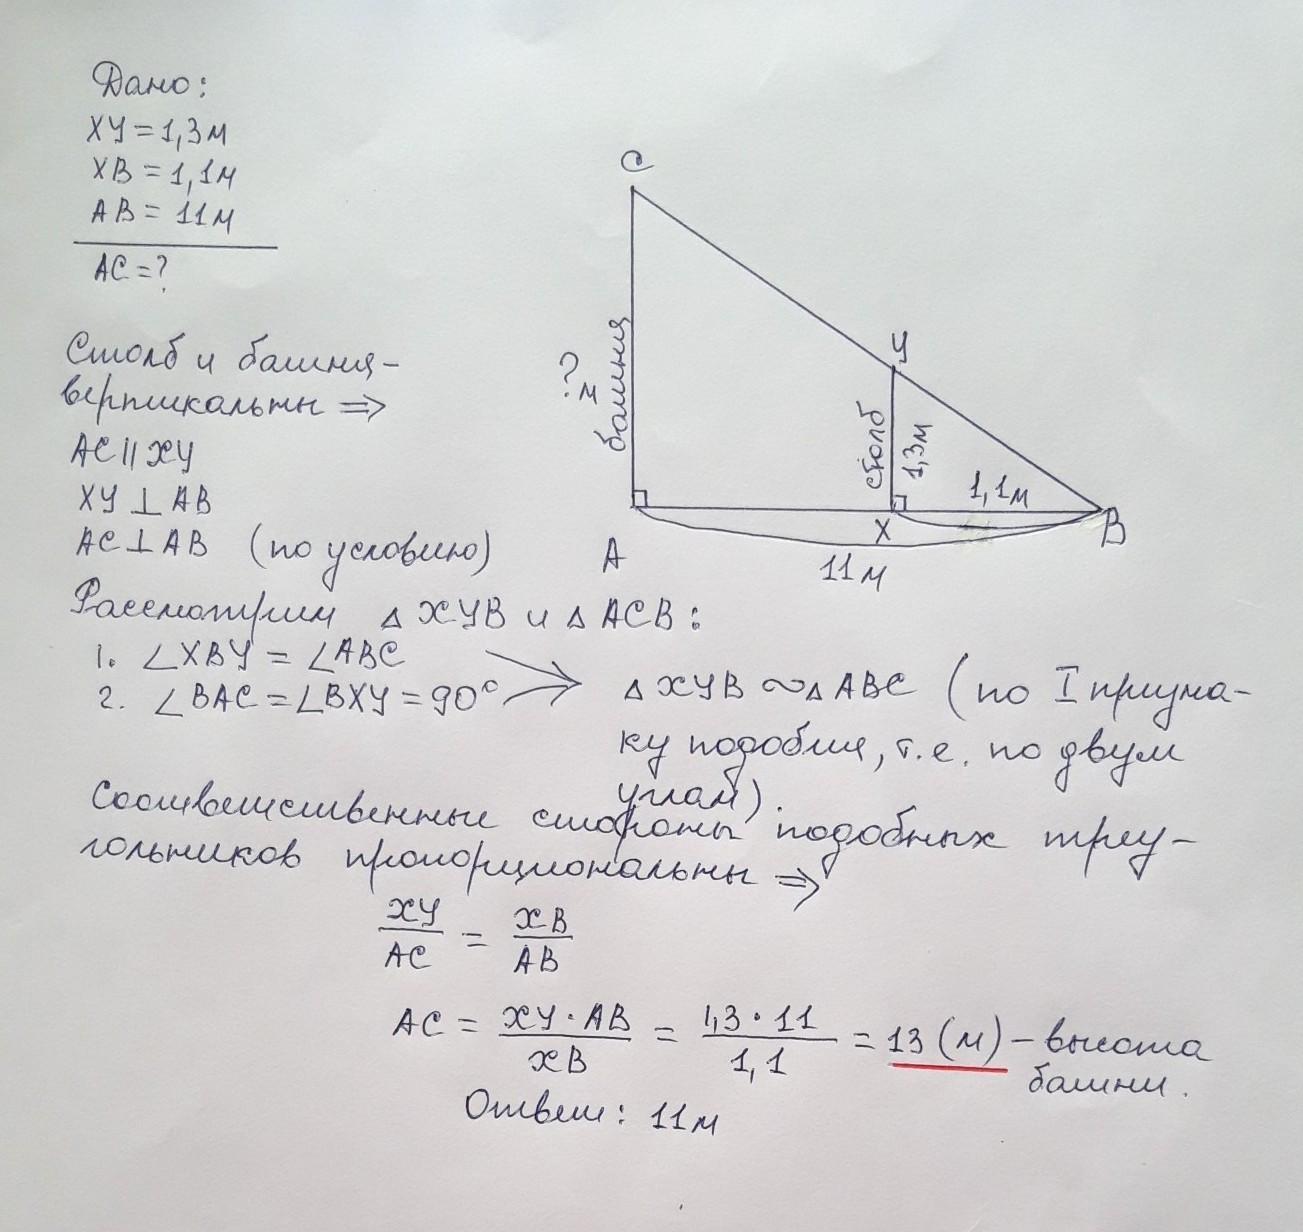 Дано:
XY = 1,3м
XB = 1,1м
AB = 11м
AC = ?
Столб и башня –
вертикальны ⇒
AC || XY
XY ⊥ AB
AC ⊥ AB (по условию)
C
Y
?м
башня
столб
1,3м
1,1м
A
X
B
11м
Рассмотрим △ XYB и △ ACB:
1. ∠XBY = ∠ABC
2. ∠BAC = ∠BXY = 90°
△ XYB ∾ △ ABC (по I призна-
ку подобия, т.е. по двум
углам).
Соответственные стороны подобных треу-
гольников пропорциональны ⇒
XY/AC = XB/AB
AC = XY · AB/XB = 1,3 · 11/1,1 = 13 (м) – высота
башни.
Ответ: 11м